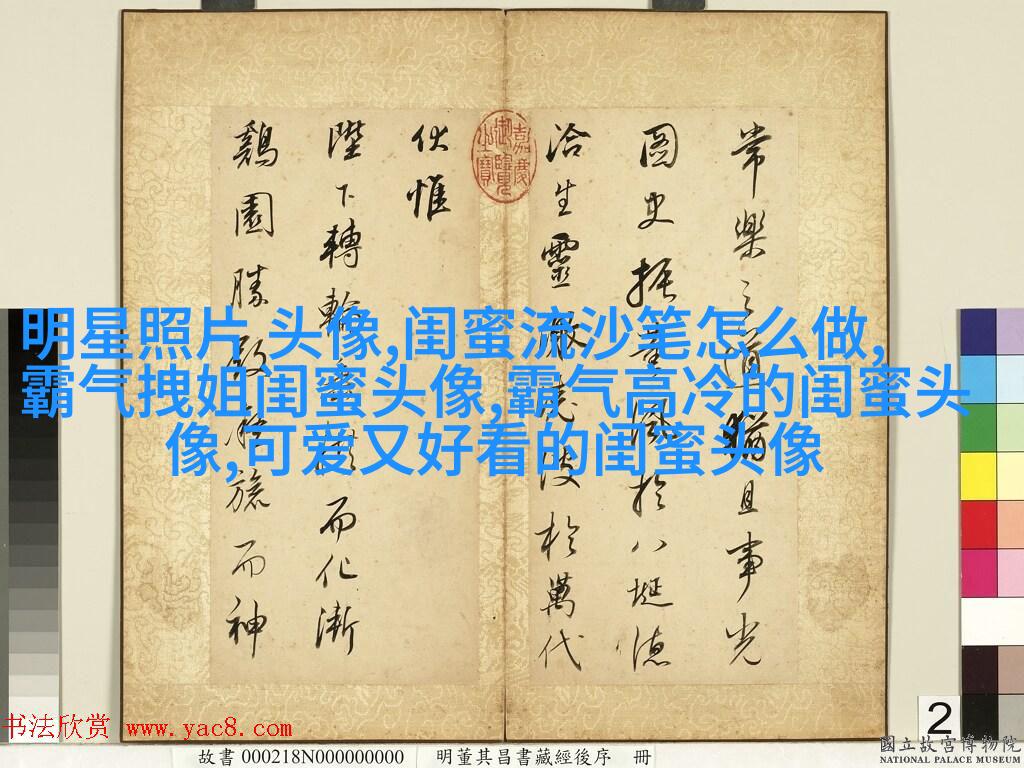 常樂之道猶且事光
圖史振風於八埏德
洽生靈激波於萬代
伏惟
陛下轉輪垂拱而化漸
鷄園勝而神
嘉慶御覽之寶
明星照片,头像,闺蜜流沙笔怎么做,
霸气拽姐闺蜜头像,霸气高冷的闺蜜头
像,可爱又好看的闺蜜头像
2
书法欣赏 www.yac8.com
故書 000218N000000000 明董其昌書藏經後序 冊
國立故宮博物院
NATIONAL PALACE MUSEUM